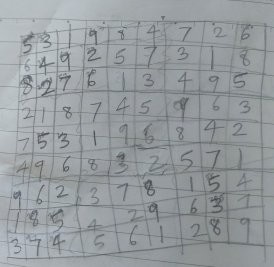 5 3 1 9 8 4 7 2 6
6 4 9 2 5 7 3 1 8
8 2 7 6 1 3 4 9 5
2 1 8 7 4 5 9 6 3
7 5 3 1 9 6 8 4 2
4 9 6 8 3 2 5 7 1
9 6 2 3 7 8 1 5 4
1 8 5 4 2 9 6 3 7
3 7 4 5 6 1 2 8 9